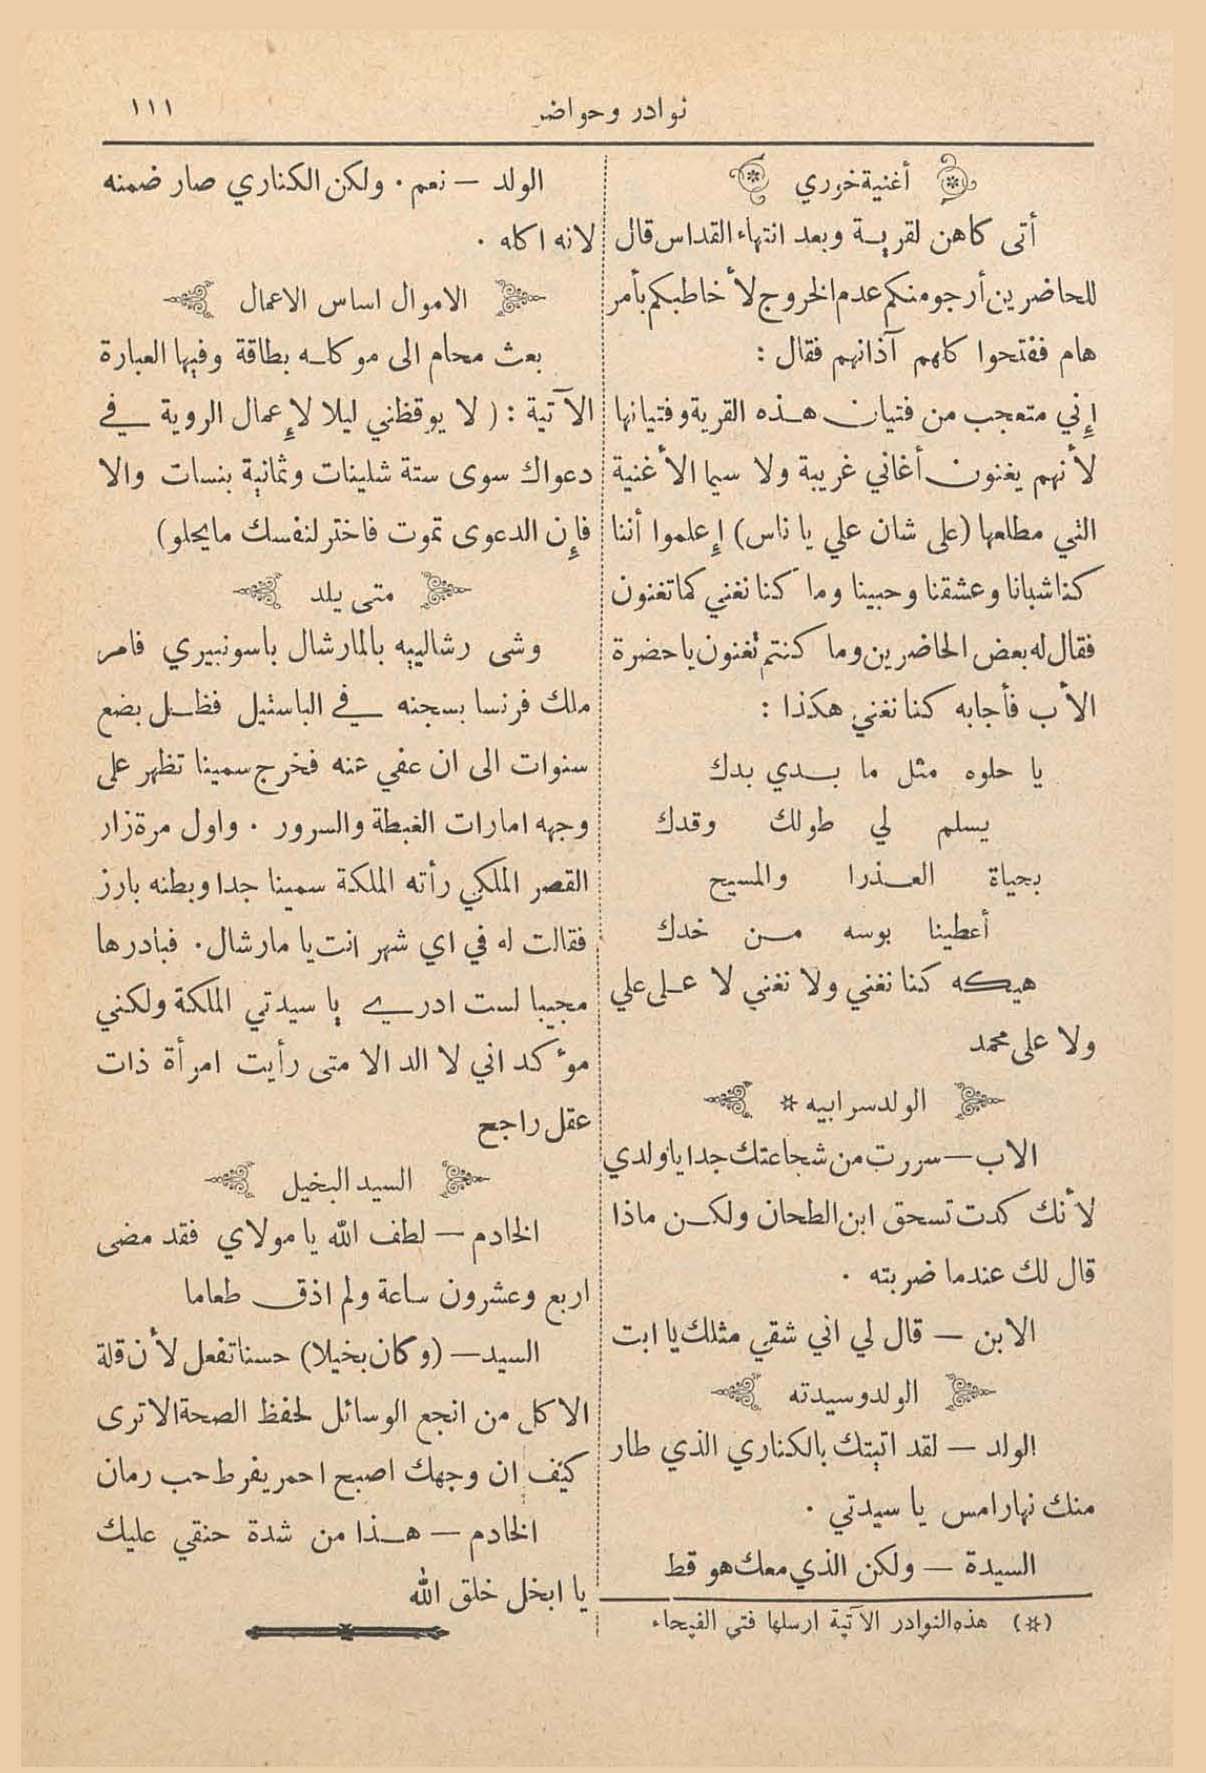 نوادر وحواضر
١١١
أغنية خوري
أتى كاهن لقرية وبعد انتهاء القداس قال
للحاضرين أرجو منكم عدم الخروج لأخاطبكم بأمر
هام ففتحوا كلهم آذانهم فقال :
إني متعجب من فتيان هذه القرية وفتياتها
لأنهم يغنون أغاني غريبة ولا سيما الأغنية
التي مطلعها (على شان علي يا ناس) إعلموا أننا
كنا شبانا وعشقنا وحبينا وما كنا نغني كما تغنون
فقال له بعض الحاضرين وما كنتم تغنون يا حضرة
الأب فأجابه كنا نغني هكذا :
يا حلوه مثل ما بدي بدك
يسلم لي طولك وقدك
بحياة العذرا والمسيح
أعطينا بوسه من خدك
هيكه كنا نغني ولا نغني لا على علي
ولا على محمد
الولد سر ابيه *
الاب — سررت من شجاعتك جدا يا ولدي
لأنك كدت تسحق ابن الطحان ولكن ماذا
قال لك عندما ضربته .
الابن — قال لي اني شقي مثلك يا ابت
الولد وسيدته
الولد — لقد اتيتك بالكناري الذي طار
منك نهار امس يا سيدتي .
السيدة — ولكن الذي معك هو قط
(*) هذه النوادر الآتية ارسلها فتى الفيحاء
الولد — نعم . ولكن الكناري صار ضمنه
لانه اكله .
الاموال اساس الاعمال
بعث محام الى موكله بطاقة وفيها العبارة
الآتية : ( لا يوقظني ليلا لإعمال الروية في
دعواك سوى ستة شلينات وثمانية بنسات والا
فإن الدعوى تموت فاختر لنفسك ما يحلو)
متى يلد
وشى رشالييه بالمارشال باسونبيري فامر
ملك فرنسا بسجنه في الباستيل فظل بضع
سنوات الى ان عفي عنه فخرج سمينا تظهر على
وجهه امارات الغبطة والسرور . واول مرة زار
القصر الملكي رأته الملكة سمينا جدا وبطنه بارز
فقالت له في اي شهر انت يا مارشال . فبادرها
مجيبا لست ادري يا سيدتي الملكة ولكني
مؤكد اني لا الد الا متى رأيت امرأة ذات
عقل راجح
السيد البخيل
الخادم — لطف الله يا مولاي فقد مضى
اربع وعشرون ساعة ولم اذق طعاما
السيد — (وكان بخيلا) حسنا تفعل لأن قلة
الاكل من انجع الوسائل لحفظ الصحة الا ترى
كيف ان وجهك اصبح احمر يفرط حب رمان
الخادم — هذا من شدة حنقي عليك
يا ابخل خلق الله